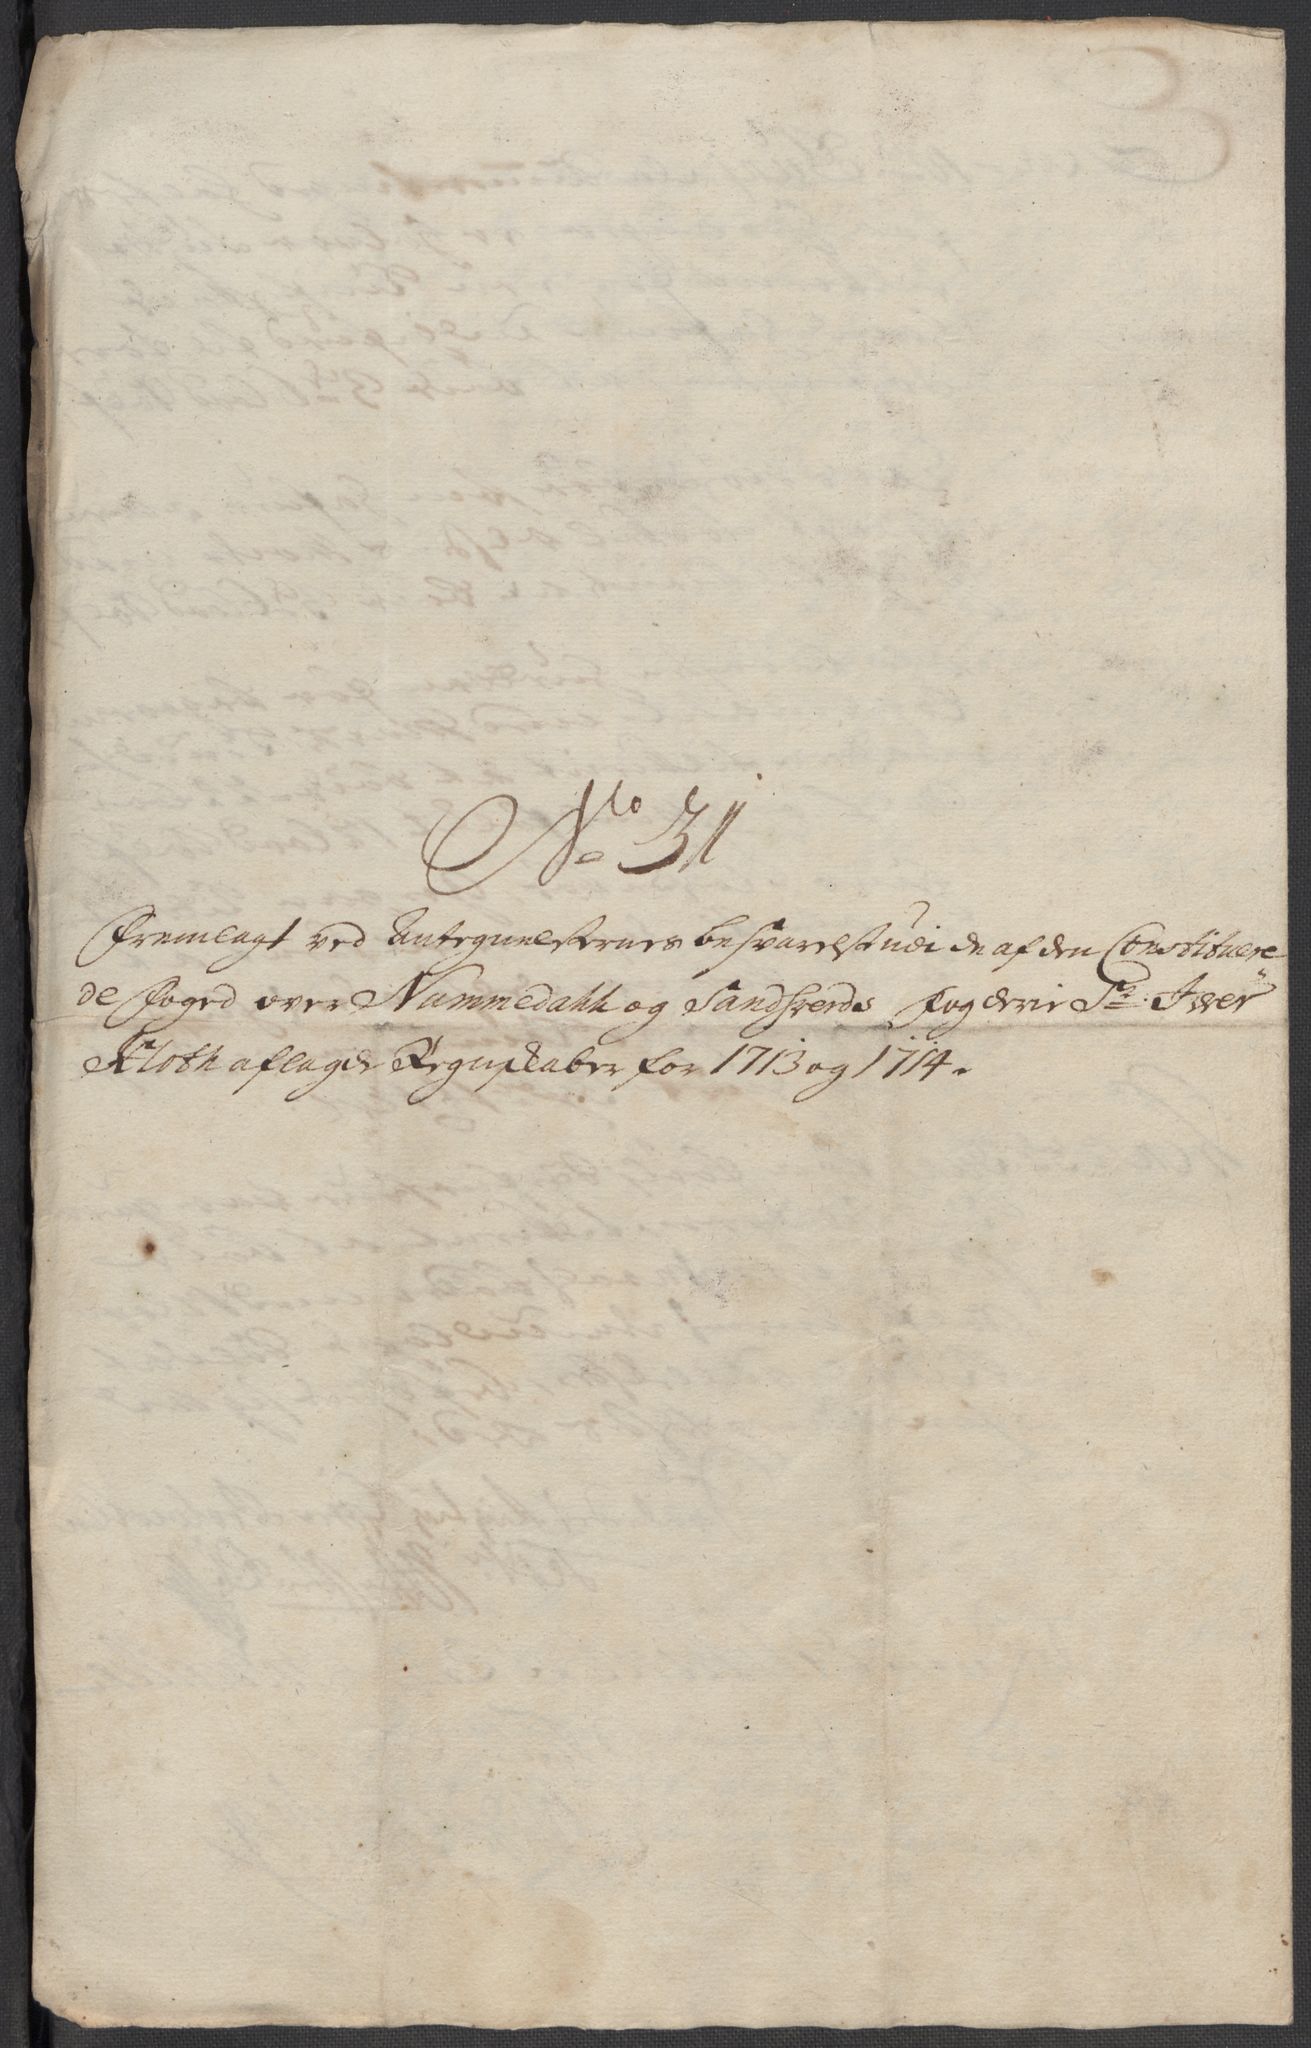 No 31
Fremlagt ved Antegnelsernes besvarelse udi de af den Constituere
de foged over Nummedahl og Sandsverds fogderie Sr: Iver
Kloth aflagde Regnskaber for 1713 og 1714.